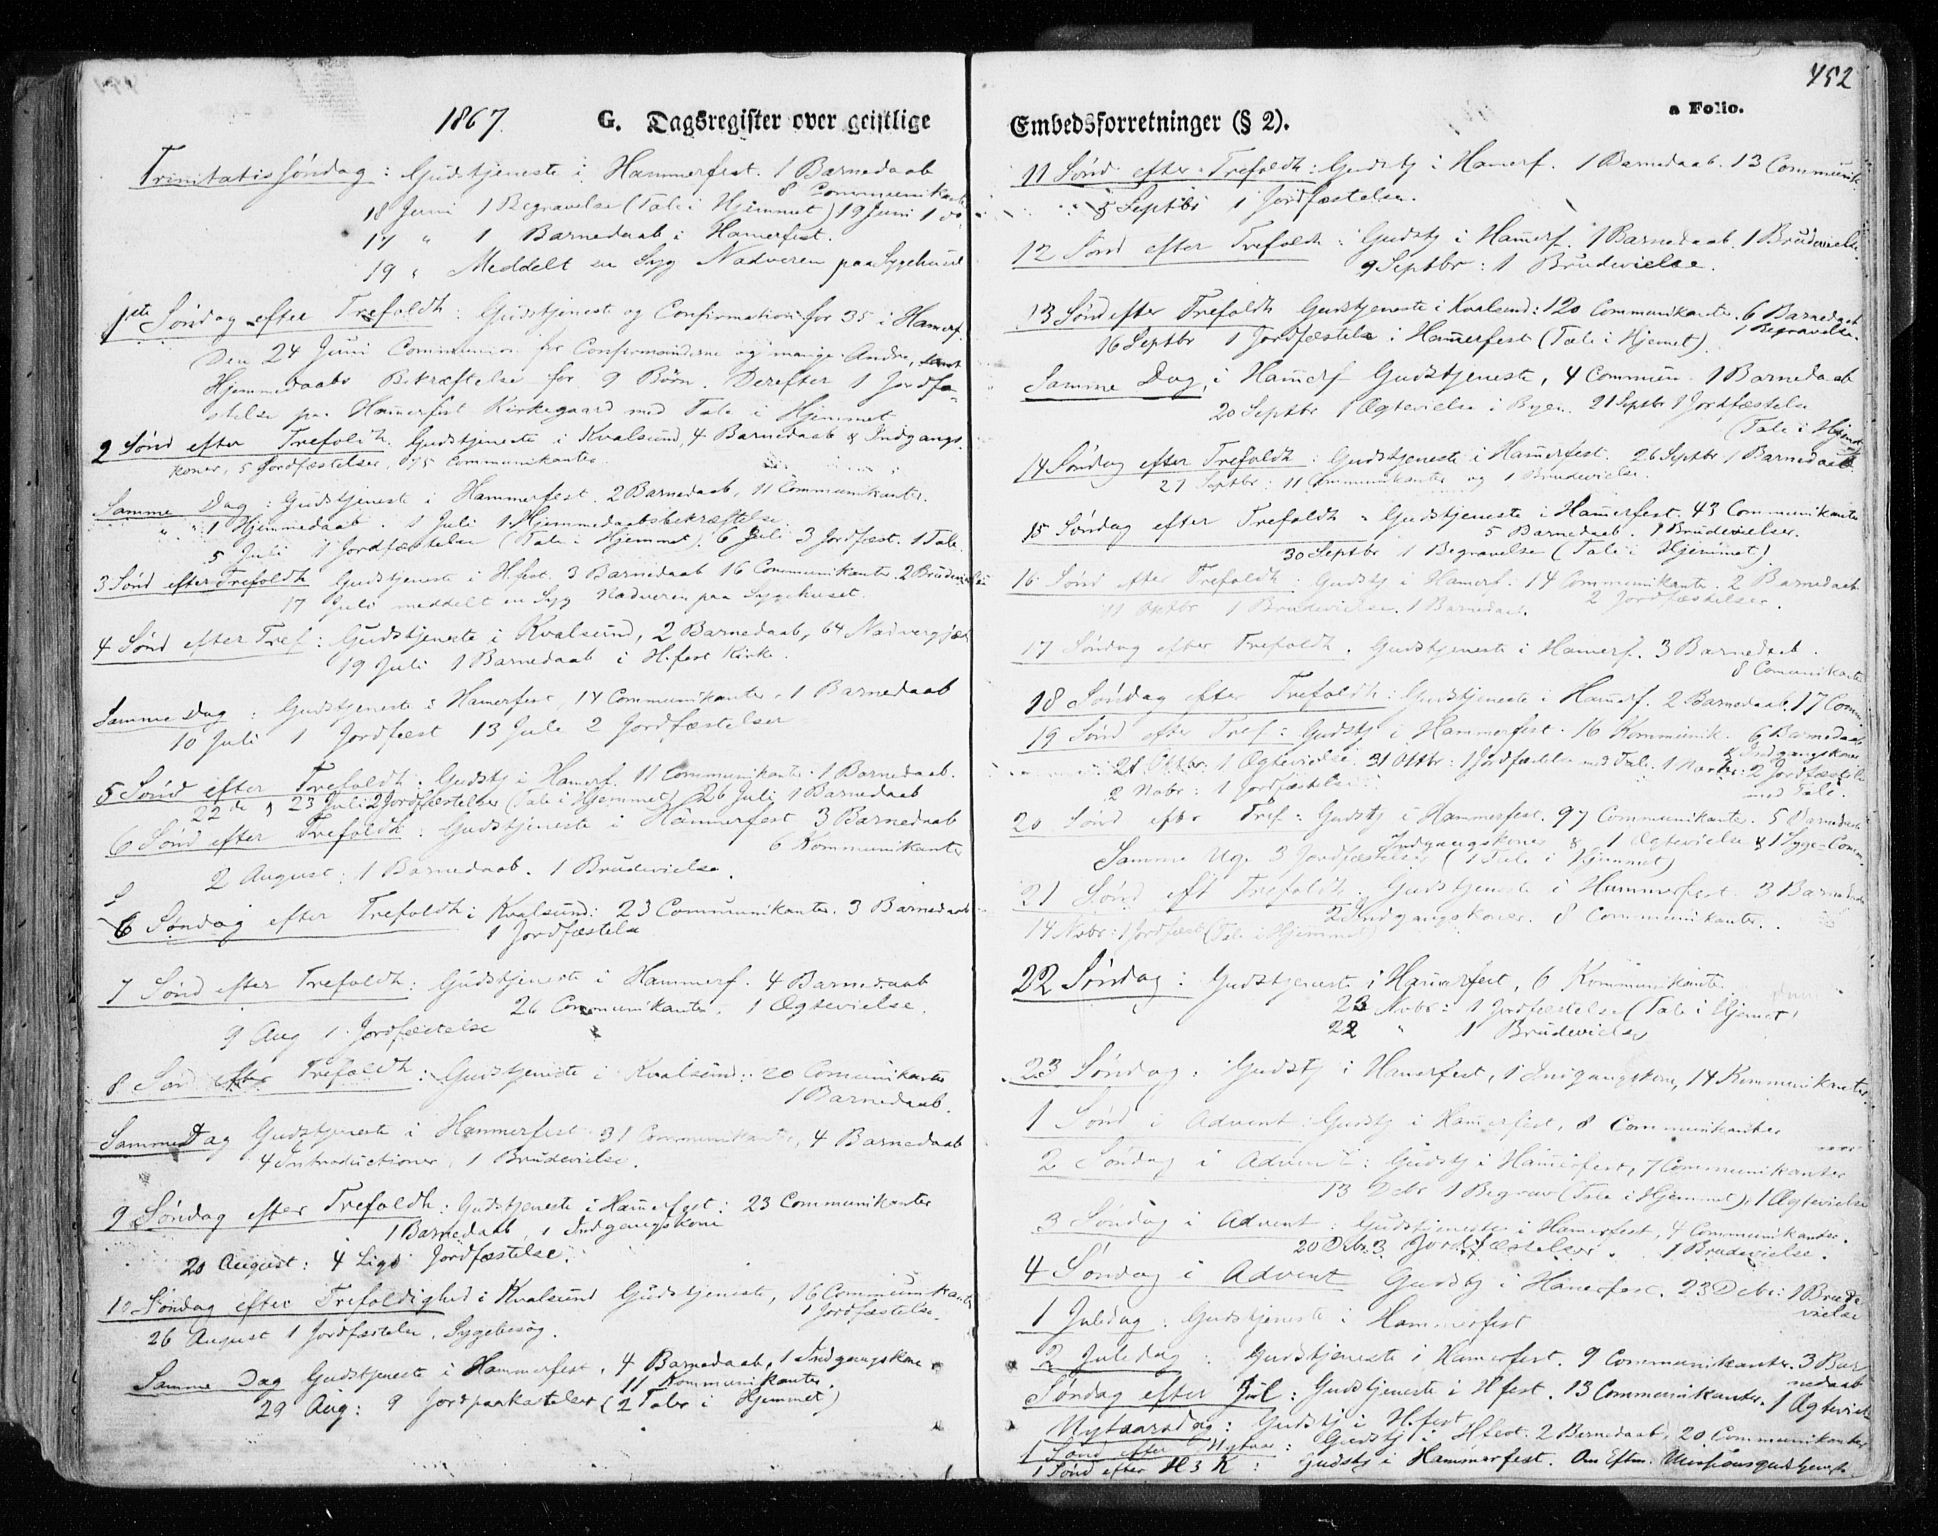 1867. G. Dagsregister over geistlige
Trinitatis søndag : Gudstjeneste i Hammerfest. 1 Barnedaab
8 Communikante
18 Juni 1 Begravelse (Tale i Hjemmet) 19 Juni 1 do
17 " 1 Barnedaab i Hamerfest.
19 " Meddelt en Syg Nadveren paa Sygehuset
1ste Søndag efter Trefoldh : Gudstjeneste og Confirmation for 35 i Hamerf.
Den 24 Juni Communion for Confirmanderne og mange Andre, samt
Hjemmedaabs Bekræftelse for 9 Børn. Derefter 1 Jordfæ-
stelse paa Hamerfest Kirkegaard med Tale i Hjemmet
2 Sønd efter Trefoldh. Gudstjeneste i Kvalsund, 4 Barnedaab & Indgangs-
koner, 5 Jordfæstelser, 75 Communikanter.
Samme Dag : Gudstjeneste i Hammerfest. 2 Barnedaab, 11 Communikanter.
" " 1 Hjemmedaab. 1 Juli 1 Hjemmedaabsbekræftelse.
5 Juli 1 Jordfæstelse (Tale i Hjemmet). 6 Juli 3 Jordfæst. 1 Tale.
3 Sønd efter Trefoldh Gudstjeneste i H.fest. 3 Barnedaab 16 Communikanter. 2 Brudevielse
17 Juli meddelt en Syg Nadveren paa Sygehuset.
4 Sønd efter Tref : Gudstjeneste i Kvalsund, 2 Barnedaab, 64 Nadvergjæ
19 Juli 1 Barnedaab i H.fest Kirke.
Samme Dag : Gudstjeneste i Hamerfest, 14 Communikanter, 1 Barnedaab
10 Juli 1 Jordfæst 13 Juli 2 Jordfæstelser
5 Sønd efter Trefoldh. Gudstj i Hamerf. 11 Communikante. 1 Barnedaab.
22de & 23 Juli 2 Jordfæstelser (Tale i Hjemmet) 26 Juli 1 Barnedaab
6 Sønd efter Trefoldh : Gudstjeneste i Hamerfest 3 Barnedaab
6 Kommunikanter
2 August : 1 Barnedaab. 1 Brudevielse.
6 Søndag efter Trefoldh i Kvalsund: 23 Communikanter. 3 Barnedaab
1 Jordfæstelse
7 Sønd efter Trefoldh : Gudstjeneste i Hammerf. 4 Barnedaab
26 Communikanter, 1 Ægtevielse.
9 Aug 1 Jordfæstelse
8 Sønd efter Trefoldh : Gudstjeneste i Kvalsund: 20 Comunikanter
1 Barnedaab.
Samme Dag Gudstjeneste i Hammerfest 31 Communikanter, 4 Barnedaab
4 Introductioner, 1 Brudevielse.
9 Søndag efter Trefoldh : Gudstjeneste i Hamerfest : 23 Communikanter
1 Barnedaab, 1 Indgangskone
20 August : 4 Ligs Jordfæstelse.
10 Søndag efter Trefoldighed i Kvalsund Gudstjeneste, 16 Communikanter
1 Jordfæstelse.
26 August 1 Jordfæstelse, Sygebesøg.
Samme Dag Gudstjeneste i Hammerfest, 4 Barnedaab, 1 Indgangskone,
11 Kommunikanter.
29 Aug : 9 Jordpaakastelser (2 Taler i Hjemmet)
452
Embedsforretninger (§ 2). a Folio.
11 Sønd efter Trefoldh : Gudstj i Hamerf. 1 Barnedaab. 13 Communik
5 Septbr 1 Jordfæstelse.
12 Sønd efter Trefoldh : Gudstj i Hamerf. 1 Barnedaab. 1 Brudevielse.
9 Septbr : 1 Brudevielse.
13 Sønd efter Trefoldh Gudstjeneste i Kvalsund : 120 Communikanter. 6 Barnedaab
1 Begravelse.
16 Septbr 1 Jordfæstelse i Hamerfest (Tale i Hjemet).
Samme Dag, i Hamerf Gudstjeneste, 4 Commun. 1 Barnedaab
20 Septbr 1 Ægtevielse i Byen. 21 Septbr 1 Jordfæstelse
(Tale i Hjemet
14 Søndag efter Trefoldh : Gudstjeneste i Hamerfest. 26 Septbr 1 Barnedaab
27 Septbr : 11 Communikanter og 1 Brudevielse.
15 Søndag efter Trefoldh : Gudstjeneste i Hamerfest. 43 Communikanter
5 Barnedaab. 1 Brudevielser.
30 Septbr 1 Begravelse (Tale i Hjemmet).
16 Sønd efter Trefoldh : Gudstj i Hamerf. 14 Communikante. 2 Barnedaab
2 Jordfæstelser.
11 Octbr 1 Brudevielse. 1 Barnedaab.
17 Søndag efter Trefoldh. Gudstjeneste i Hamerf. 3 Barnedaab.
8 Comunikanter
18 Søndag efter Trefoldh : Gudstjeneste i Hamerf. 2 Barnedaab. 17 Comm.
19 Sønd efter Tref : Gudstj i Hammerfest. 16 Kommunik. 6 Barnedaab
Indgangskoner
21 Octbr. 1 Ægtevielse 31 Octbr : 1 Jordfæstelse med Tale. 1 Novbr : 2 Jordfæstelse
med Tale.
2 Novbr : 1 Jordfæstelse
20 Sønd efter Tref : Gudstj i Hammerfest. 97 Communikanter. 5 Barnedaab
Indgangskoner & 1 Ægtevielse & 1 Syge=Comm.
Samme Uge 3 Jordfæstelser (1 Tale i Hjemmet)
21 Sønd eft Trefoldh. Gudstjeneste i Hammerfest. 3 Barnedaab
2 Indgangskoner. 8 Communikanter.
14 Novbr : 1 Jordfæst (Tale i Hjemmet)
22 Søndag : Gudstjeneste i Hamerfest, 6 Kommunikante.
23 Novbr : 1 Jordfæstelse (Tale i Hjemet)
22 " 1 Brudevielse
23 Søndag. Gudstj i Hamerfest, 1 Indgangskone, 14 Kommunikanter.
1 Sønd i Advent Gudstj i Hamerfest, 8 Communikanter
2 Søndag i Advent : Gudstj i Hamerfest, 7 Communikanter
13 Debr 1 Begrav (Tale i Hjemmet), 1 Ægtevielse
3 Søndag i Advent : Gudstjeneste i Hamerfest, 4 Communikanter.
20 Debr. 3 Jordfæstelser. 1 Brudevielse.
4 Søndag i Advent Gudstj i Hamerfest. 23 Debr : 1 Brude-
vielse
1 Juledag : Gudstjeneste i Hammerfest
2 Juledag : Gudstjeneste i Hamerfest. 9 Communikanter. 3 Bar-
nedaab
Søndag efter Jul : Gudstjeneste i Hfest. 13 Communikanter. 1 Ægteviel
Nytaarsdag : Gudstj i H.fest.
1 Sønd efter Nytaar : Gudstj i Hfest. 2 Barnedaab, 20 Communikanter
1 Sønd efter H 3 K : Gudstj i Hammerfest. Om Eftm. Missionsgudstjeneste